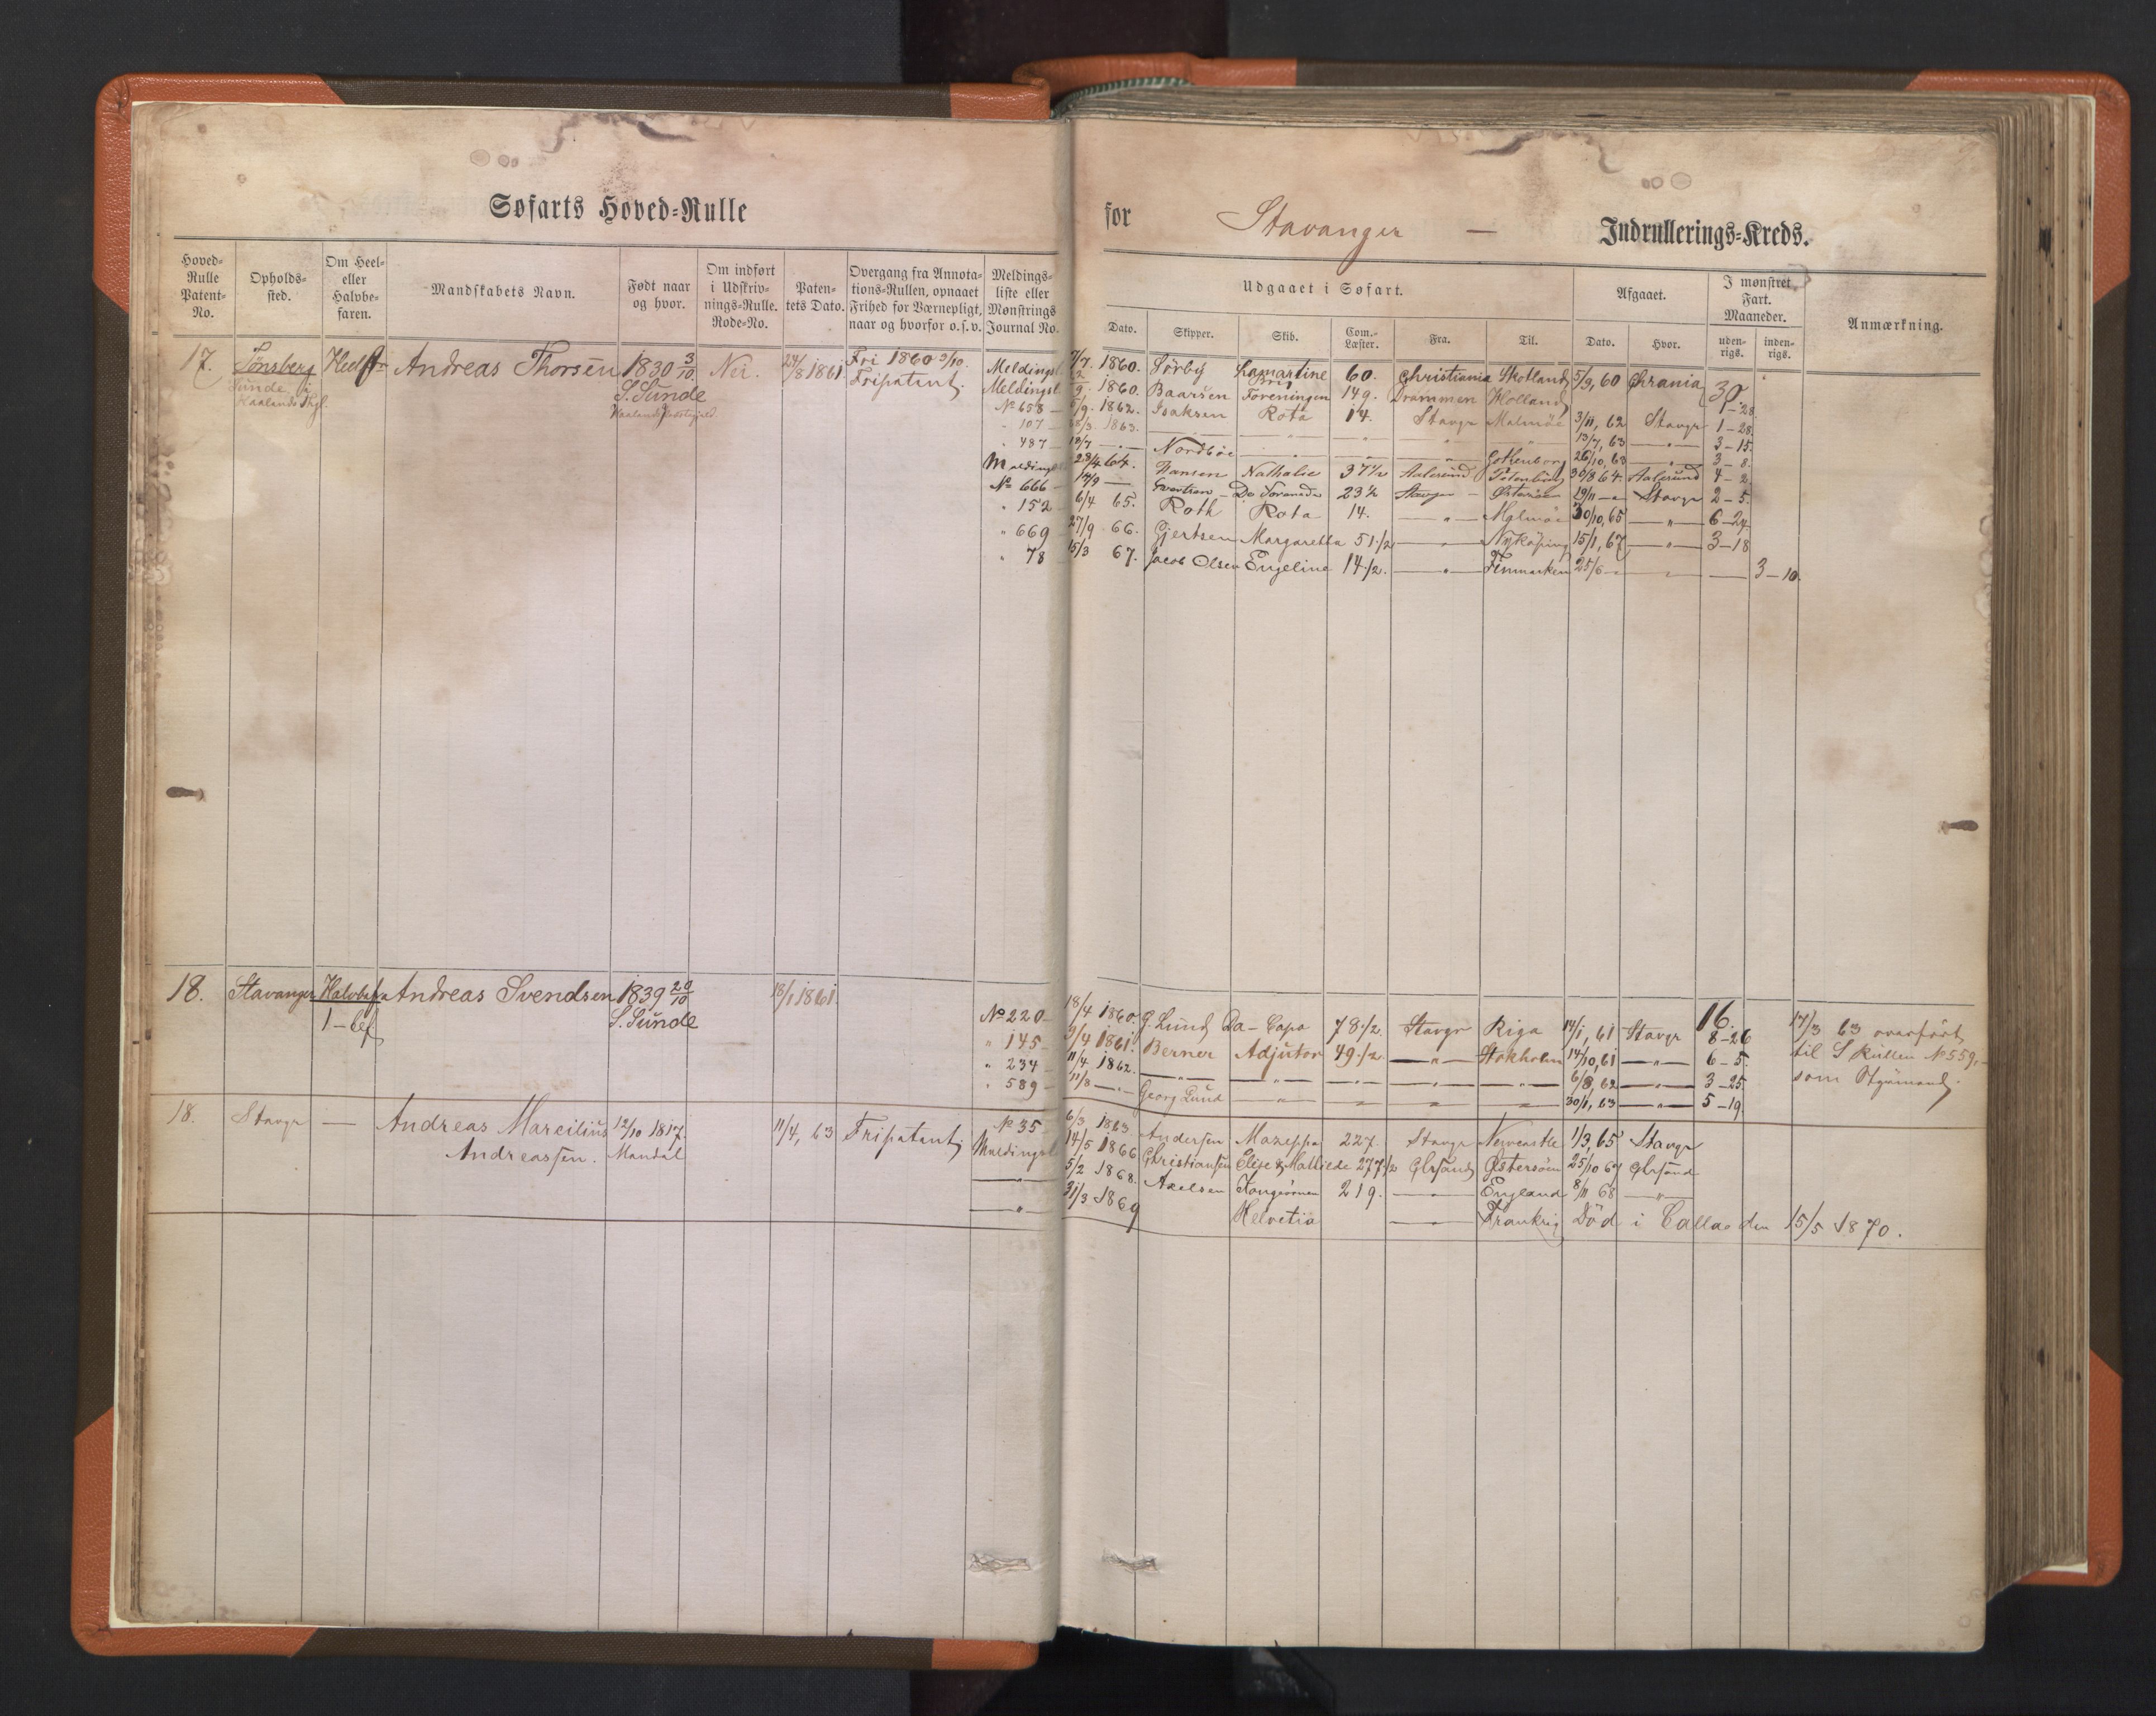 Søfarts Hoved-Rulle for Stavanger — Indrullerings-Kreds.
Hoved-Rulle Patent-No.
Opholds-sted.
Om Heel- eller Halvbe-faren.
Mandskabets Navn.
Født naar og hvor.
Om indført i Udskriv-nings-Rulle. Rode-No.
Paten-tets Dato.
Overgang fra Annota-tions-Rullen, opnaaet Frihed for Værnepligt, naar og hvorfor o.s.v.
Meldings-liste eller Mønstrings Journal No.
Udgaaet i Søfart.
Dato. Skipper. Skib. Com.-Læster. Fra. Til.
Afgaaet.
Dato. Hvor.
I mønstret Fart. Maaneder.
uden-rigs. inden-rigs.
Anmærkning.
17. Tønsberg Heelbf. Andreas Thorsen 1830 3/10 Nei. 24/8 1861 Fri 1860 3/10. Meldingsl. 7/7 1860. Sørby Lamartine 60. Christiania Skotland 5/9, 60 Chrania 30.
Sunde i S. Sunde Fripatent. Meldingsl 1860. Baarsen Brig Foreningen 149. Drammen Holland
No 658 5/9 1862. Isaksen Rota 14. Stavgr Malmøe 3/11, 62 Stavgr 1-28
" 107 28/3 1863. — " — — " — — " — — " — — " — 13/7, 63 — " — 3-15.
" 487 18/7 — " — Nordbøe — " — Gothenborg 26/10, 63 — " — 3-8.
Meldingsl 23/4 64. Hansen Nathalie 37 1/2 Aalesund 30/8 64. Aalesund 4-2
No 666 14/9 — Evertsen De Forenede 23 1/2 Stavgr Østersøen 19/11 — Stavgr 2-5.
" 152 6/4 65. Roth Rota 14. — " — Malmøe 30/10, 65 — " — 6-24
" 669 27/9 66. Gjertsen Margaretha 51 1/2 — " — Nykøping 15/1, 67 — " — 3-18
" 78 15/3 67. Jacob Olsen Engeline 14 1/2. — " — Finmarken 25/6 — 3-10.
18. Stavanger Halvbef. Andreas Svendsen 1839 20/10 18/1 1861. No 220 18/4 1860. G. Lund Da-Capo 78 1/2. Stavgr Riga 14/1, 61 Stavgr 16. 8-26 17/3 63 overført
1-bef S. Sunde " 145 9/4 1861. Berner Adjutor 49 1/2 — " — Stokholm 14/10, 61 — " — 6-5. til S Rullen No 559.
" 234 11/4 1862. — " — — " — — " — — " — — " — 6/8, 62 — " — 3-25. som Styrmand.
" 589 11/8 — " — Georg Lund — " — — " — — " — — " — 30/1, 63 — " — 5-19
18. Stavgr — Andreas Marcilius 12/10 1817. 11/4, 63 Fripatent, No 35 6/3 1863 Andersen Mazeppa 227. Stavgr Newcastle 1/3, 65 Stavgr
Andreassen. Mandal Meldingsl 14/5 1866 Christiansen Elise & Mathilde 277 1/2 Chrsand Østersøen 25/10 67 Chrsand
— " — 5/2 1868. Axelsen 219. — " — England 8/11 68 — " —
— " — 31/3 1869 Helvetia — " — Frankrig Død i Callao den 15/5 1870.